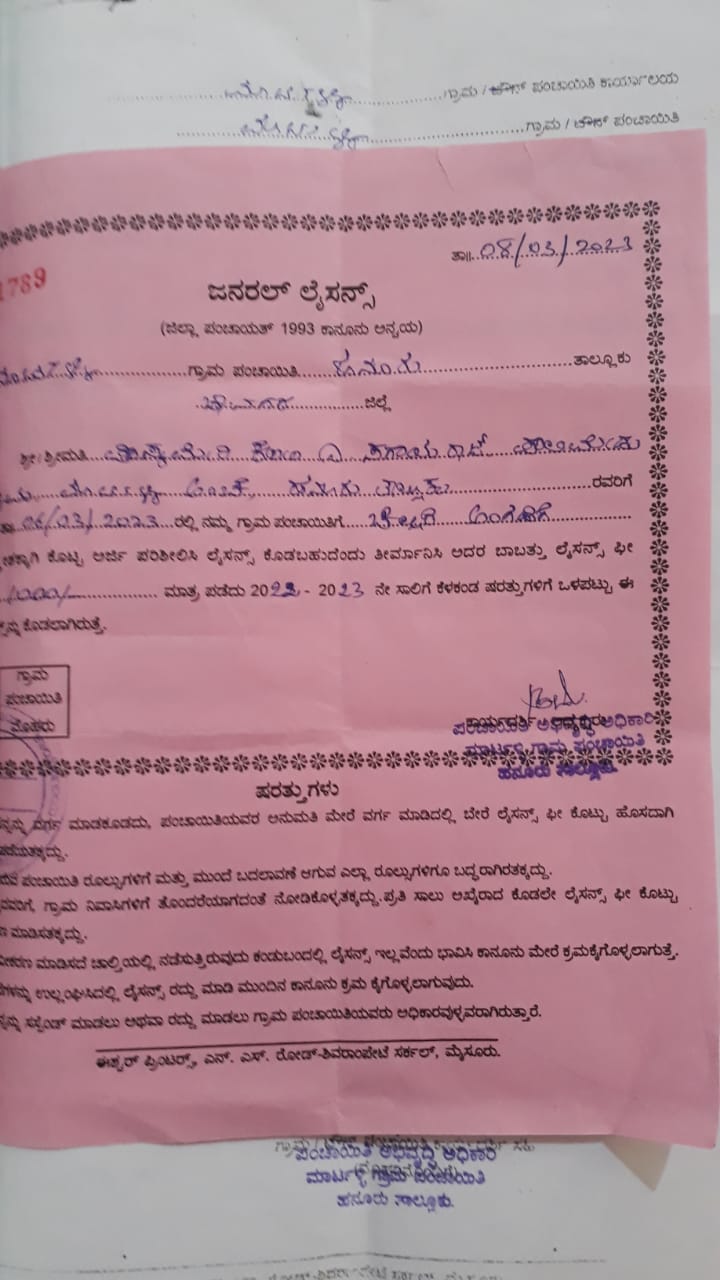 ಗ್ರಾಮ / ಟೌನ್ ಪಂಚಾಯಿತಿ ಕಾರ್ಯಾಲಯ
ಗ್ರಾಮ / ಟೌನ್ ಪಂಚಾಯಿತಿ
ತಾ॥ 08/03/2023
1789
ಜನರಲ್ ಲೈಸನ್ಸ್
(ಜಿಲ್ಲಾ ಪಂಚಾಯತ್ 1993 ಕಾನೂನು ಅನ್ವಯ)
ಗ್ರಾಮ ಪಂಚಾಯಿತಿ ಹನೂರು ತಾಲ್ಲೂಕು
ಜಿಲ್ಲೆ
ಶ್ರೀ/ಶ್ರೀಮತಿ
ಹನೂರು ತಾಲ್ಲೂಕು ರವರಿಗೆ
ತಾ 06/03/2023 ರಲ್ಲಿ ನಮ್ಮ ಗ್ರಾಮ ಪಂಚಾಯಿತಿಗೆ ಬೇಕರಿ ಅಂಗಡಿಗೆ
ಕೊಟ್ಟ ಅರ್ಜಿ ಪರಿಶೀಲಿಸಿ ಲೈಸನ್ಸ್ ಕೊಡಬಹುದೆಂದು ತೀರ್ಮಾನಿಸಿ ಅದರ ಬಾಬತ್ತು ಲೈಸನ್ಸ್ ಫೀ
1000/- ಮಾತ್ರ ಪಡೆದು 2022 - 2023 ನೇ ಸಾಲಿಗೆ ಕೆಳಕಂಡ ಷರತ್ತುಗಳಿಗೆ ಒಳಪಟ್ಟು ಈ
ಕೊಡಲಾಗಿರುತ್ತೆ.
ಗ್ರಾಮ
ಪಂಚಾಯಿತಿ
ಮೊಹರು
ಪಂಚಾಯಿತಿ ಅಭಿವೃದ್ಧಿ ಅಧಿಕಾರಿ
ಮಾರ್ಟಳ್ಳಿ ಗ್ರಾಮ ಪಂಚಾಯಿತಿ
ಹನೂರು ತಾಲ್ಲೂಕು.
ಷರತ್ತುಗಳು
ವರ್ಗ ಮಾಡಕೂಡದು, ಪಂಚಾಯಿತಿಯವರ ಅನುಮತಿ ಮೇರೆ ವರ್ಗ ಮಾಡಿದಲ್ಲಿ ಬೇರೆ ಲೈಸನ್ಸ್ ಫೀ ಕೊಟ್ಟು ಹೊಸದಾಗಿ
ಪಡೆಯತಕ್ಕದ್ದು.
ಪಂಚಾಯಿತಿ ರೂಲ್ಸುಗಳಿಗೆ ಮತ್ತು ಮುಂದೆ ಬದಲಾವಣೆ ಆಗುವ ಎಲ್ಲಾ ರೂಲ್ಸುಗಳಿಗೂ ಬದ್ಧರಾಗಿರತಕ್ಕದ್ದು.
ಗ್ರಾಮ ನಿವಾಸಿಗಳಿಗೆ ತೊಂದರೆಯಾಗದಂತೆ ನೋಡಿಕೊಳ್ಳತಕ್ಕದ್ದು. ಪ್ರತಿ ಸಾಲು ಅಖೈರಾದ ಕೂಡಲೇ ಲೈಸನ್ಸ್ ಫೀ ಕೊಟ್ಟು
ಮಾಡಿಸತಕ್ಕದ್ದು.
ಮಾಡಿಸದೆ ಚಾಲ್ತಿಯಲ್ಲಿ ನಡೆಸುತ್ತಿರುವುದು ಕಂಡುಬಂದಲ್ಲಿ ಲೈಸನ್ಸ್ ಇಲ್ಲವೆಂದು ಭಾವಿಸಿ ಕಾನೂನು ಮೇರೆ ಕ್ರಮಕೈಗೊಳ್ಳಲಾಗುತ್ತೆ.
ಉಲ್ಲಂಘಿಸಿದಲ್ಲಿ ಲೈಸನ್ಸ್ ರದ್ದು ಮಾಡಿ ಮುಂದಿನ ಕಾನೂನು ಕ್ರಮ ಕೈಗೊಳ್ಳಲಾಗುವುದು.
ಸಸ್ಪೆಂಡ್ ಮಾಡಲು ಅಥವಾ ರದ್ದು ಮಾಡಲು ಗ್ರಾಮ ಪಂಚಾಯಿತಿಯವರು ಅಧಿಕಾರವುಳ್ಳವರಾಗಿರುತ್ತಾರೆ.
ಈಶ್ವರ್ ಪ್ರಿಂಟರ್ಸ್, ಎನ್. ಎಸ್. ರೋಡ್-ಶಿವರಾಂಪೇಟೆ ಸರ್ಕಲ್, ಮೈಸೂರು.
ಪಂಚಾಯಿತಿ ಅಭಿವೃದ್ಧಿ ಅಧಿಕಾರಿ
ಮಾರ್ಟಳ್ಳಿ ಗ್ರಾಮ ಪಂಚಾಯಿತಿ
ಹನೂರು ತಾಲ್ಲೂಕು.